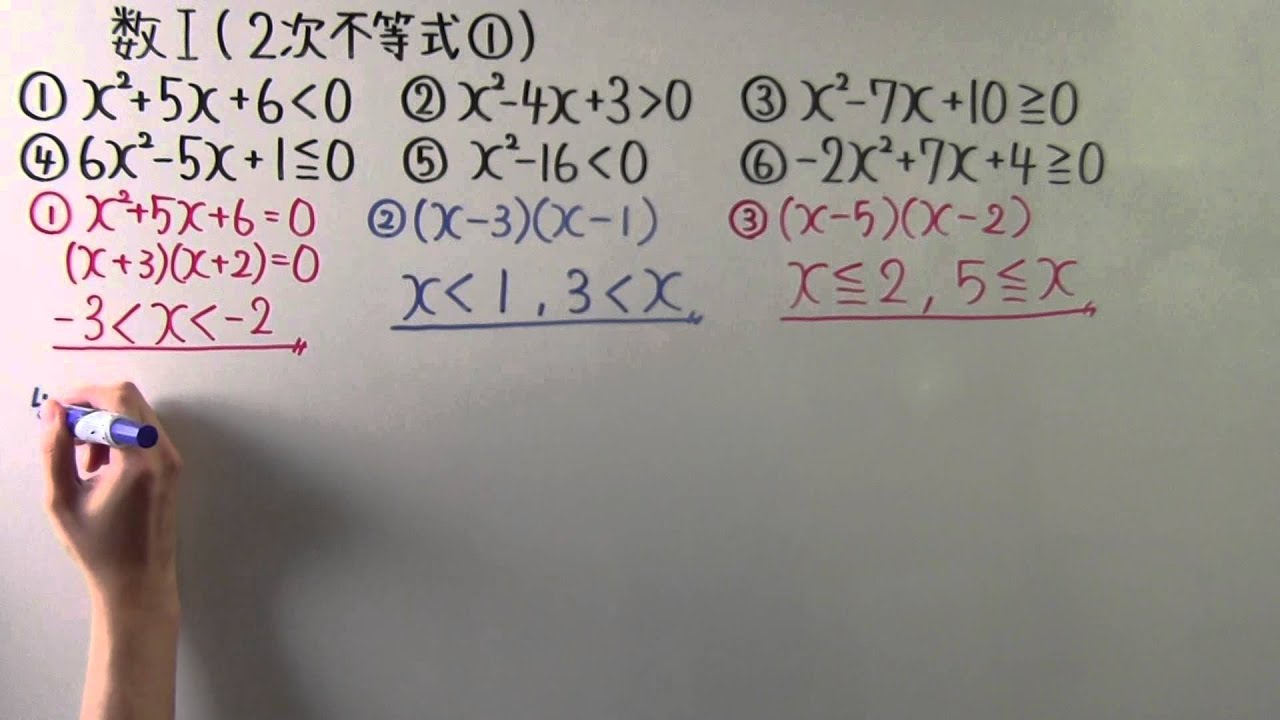 数Ⅰ(2次不等式①)
① x²+5x+6<0 ② x²-4x+3>0 ③ x²-7x+10≧0
④ 6x²-5x+1≦0 ⑤ x²-16<0 ⑥ -2x²+7x+4≧0
① x²+5x+6=0
(x+3)(x+2)=0
-3<x<-2
② (x-3)(x-1)
x<1, 3<x
③ (x-5)(x-2)
x≦2, 5≦x